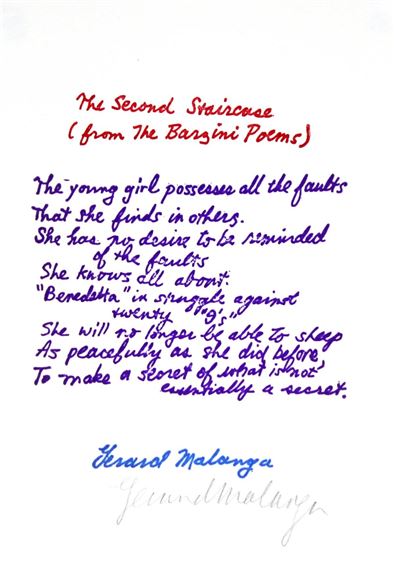 The Second Staircase
(from The Barzini Poems)
The young girl possesses all the faults
That she finds in others.
She has no desire to be reminded
of the faults
She knows all about.
"Benedetta" in struggle against
twenty "9's"
She will no longer be able to sleep
As peacefully as she did before,
To make a secret of what is not
essentially a secret.
Gerard Malanga
Gerard Malanga